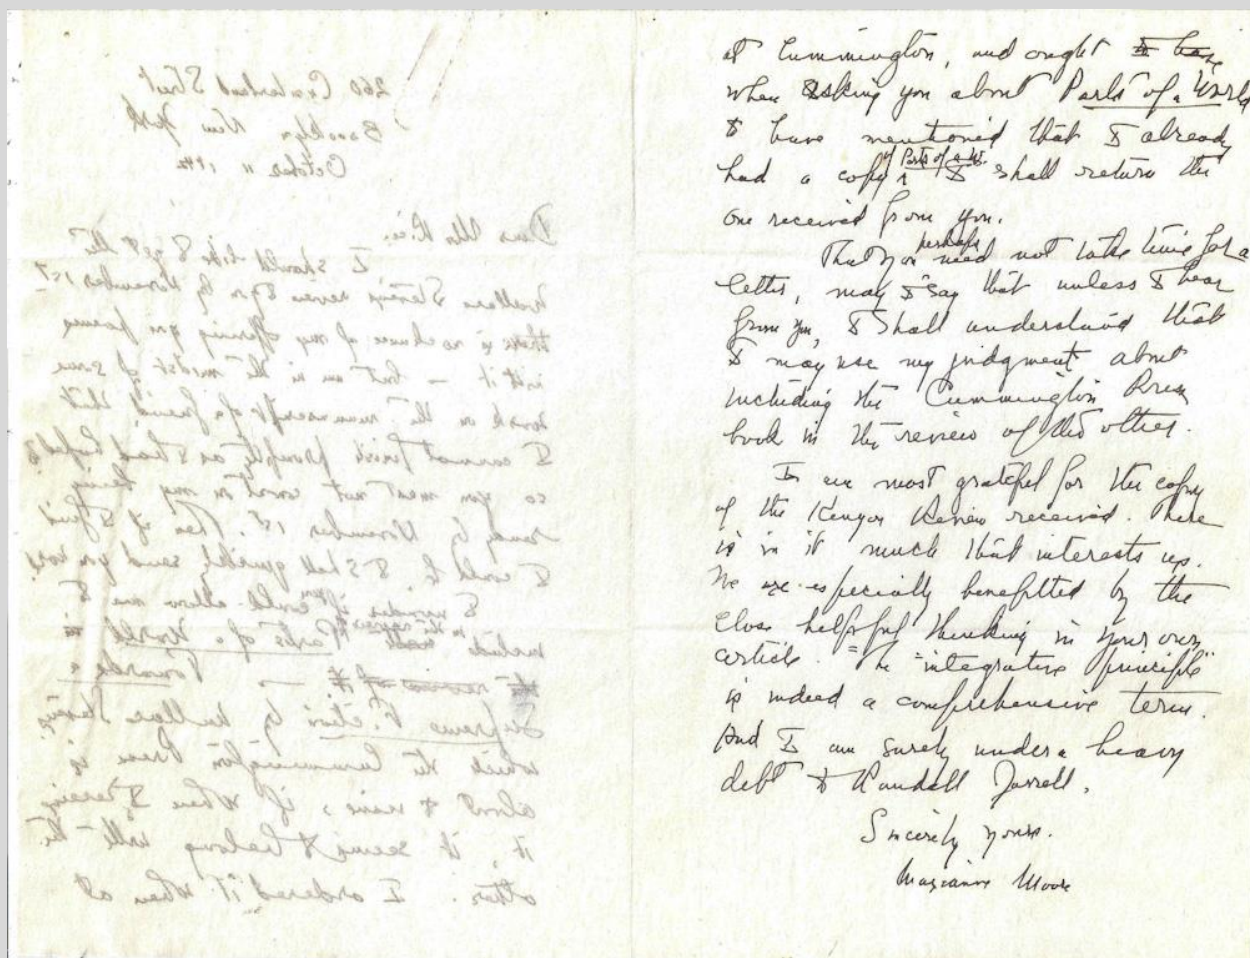 260 Cumberland Street
Brooklyn New York
October 11 1942
Dear Mr.
I should like to get the
Wallace Stevens review to you by November 1st
there is no chance of my offering you poems
it – but am in the midst of some
work on the manuscript of a friend that
I cannot finish promptly as I had hoped to
so you must not count on my being
ready by November 1st. if I find
I could be I shall quickly send you word.
I wonder if you could allow me to
include in the review Parts of a World
the review of it – Towards a
Supreme Fiction by Wallace Stevens
which the Cummington Press is
about to, if when I receive
it, it seems to belong with the
other. I ordered it when at
at Cummington, and ought to have
when asking you about Parts of a World
to have mentioned that I already
had a copy of Parts of a W. I shall return the
one received from you.
That you perhaps need not take time for a
letter, may I say that unless I hear
from you, I shall understand that
I may use my judgment about
including the Cummington Press
book in the review of the other.
I am most grateful for the copy
of the Kenyon Review received. There
is in it much that interests us.
We are especially benefitted by the
close helpful thinking in your own
article. The "integrative principle"
is indeed a comprehensive term.
And I am surely under a heavy
debt to Randall Jarrell.
Sincerely yours.
Marianne Moore